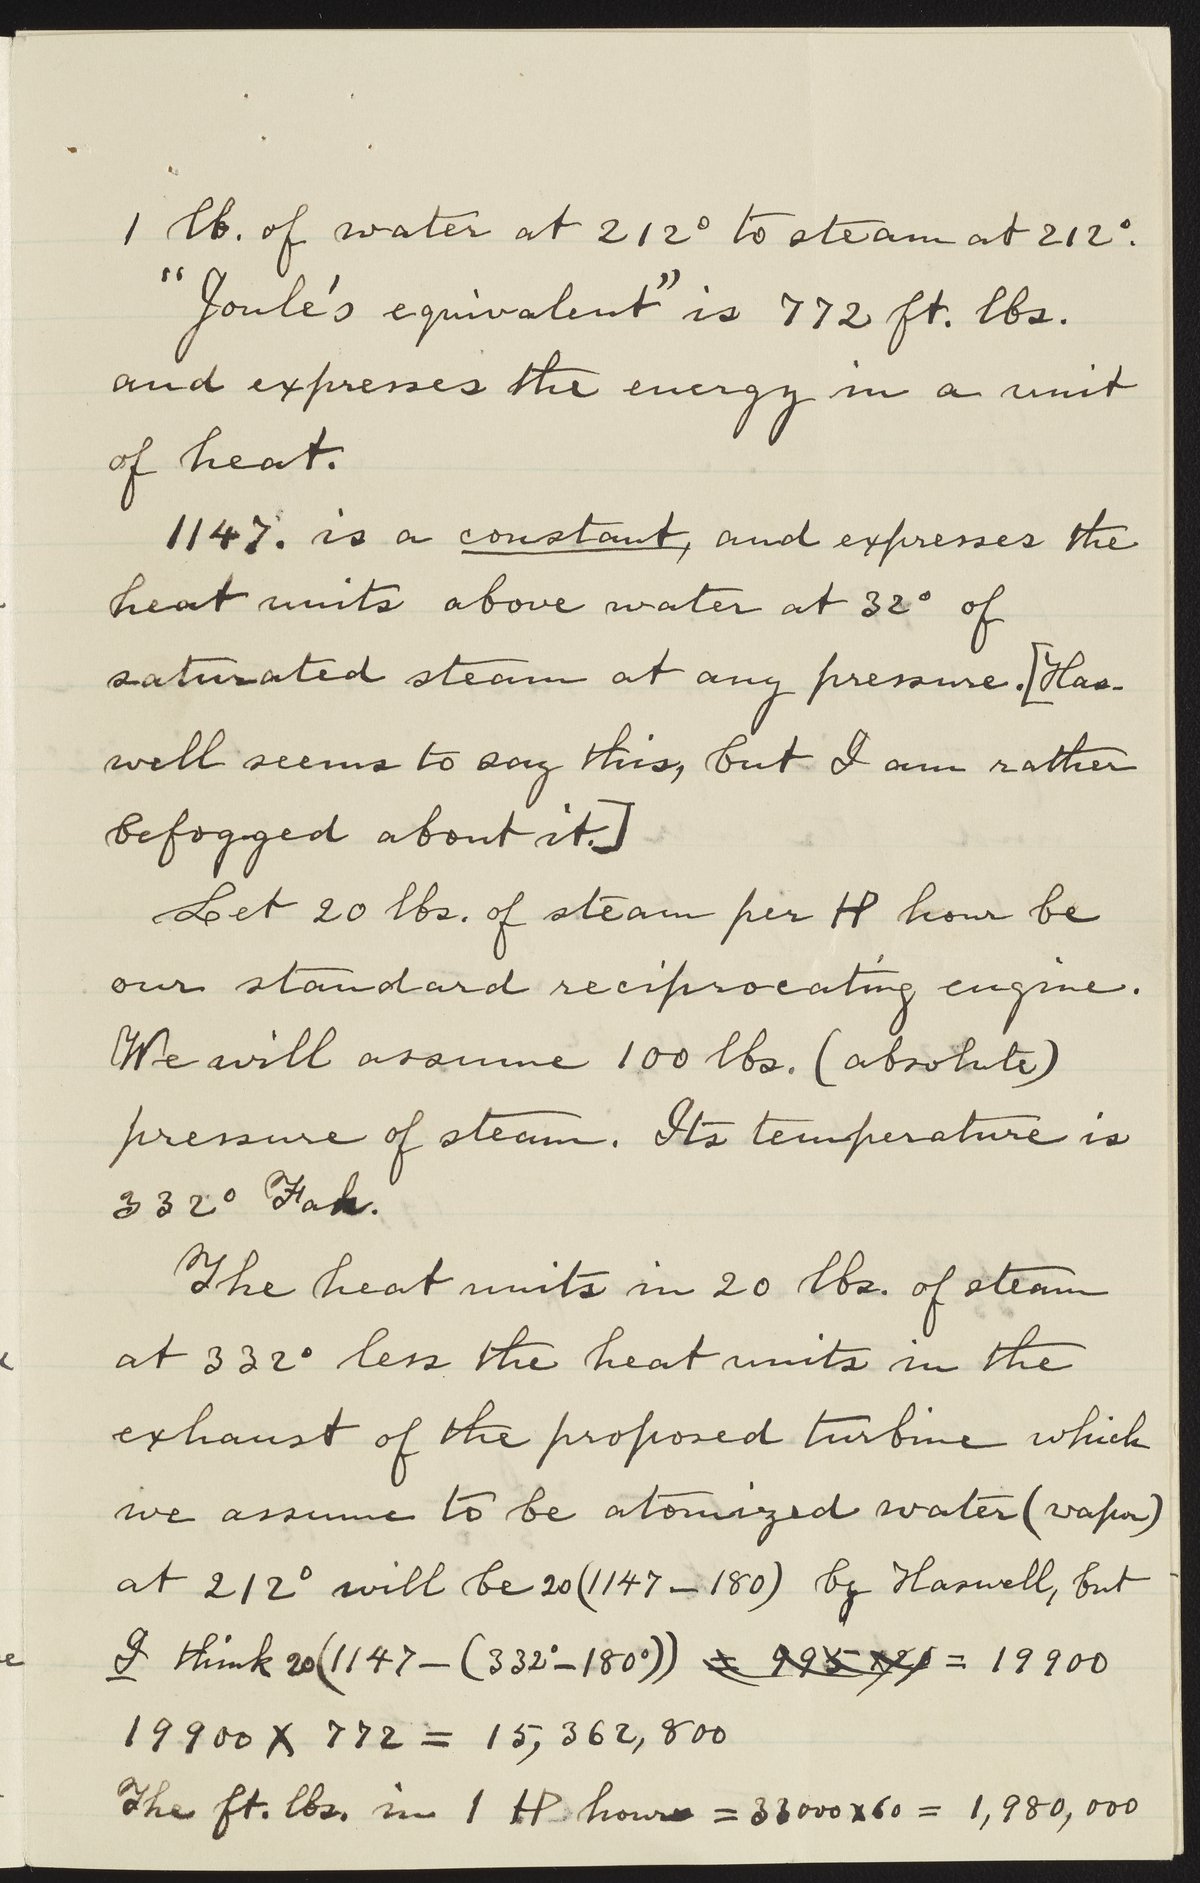 1 lb. of water at 212° to steam at 212°.
"Joule's equivalent" is 772 ft. lbs.
and expresses the energy in a unit
of heat.
1147. is a constant, and expresses the
heat units above water at 32° of
saturated steam at any pressure. [Has-
well seems to say this, but I am rather
befogged about it.]
Let 20 lbs. of steam per HP hour be
our standard reciprocating engine.
We will assume 100 lbs. (absolute)
pressure of steam. Its temperature is
332° Fah.
The heat units in 20 lbs. of steam
at 332° less the heat units in the
exhaust of the proposed turbine which
we assume to be atomized water (vapor)
at 212° will be 20(1147 – 180) by Haswell, but
I think 20(1147 – (332° – 180°)) = 995 x 20 = 19900
19900 X 772 = 15,362,800
The ft. lbs. in 1 HP hour = 33000 x 60 = 1,980,000